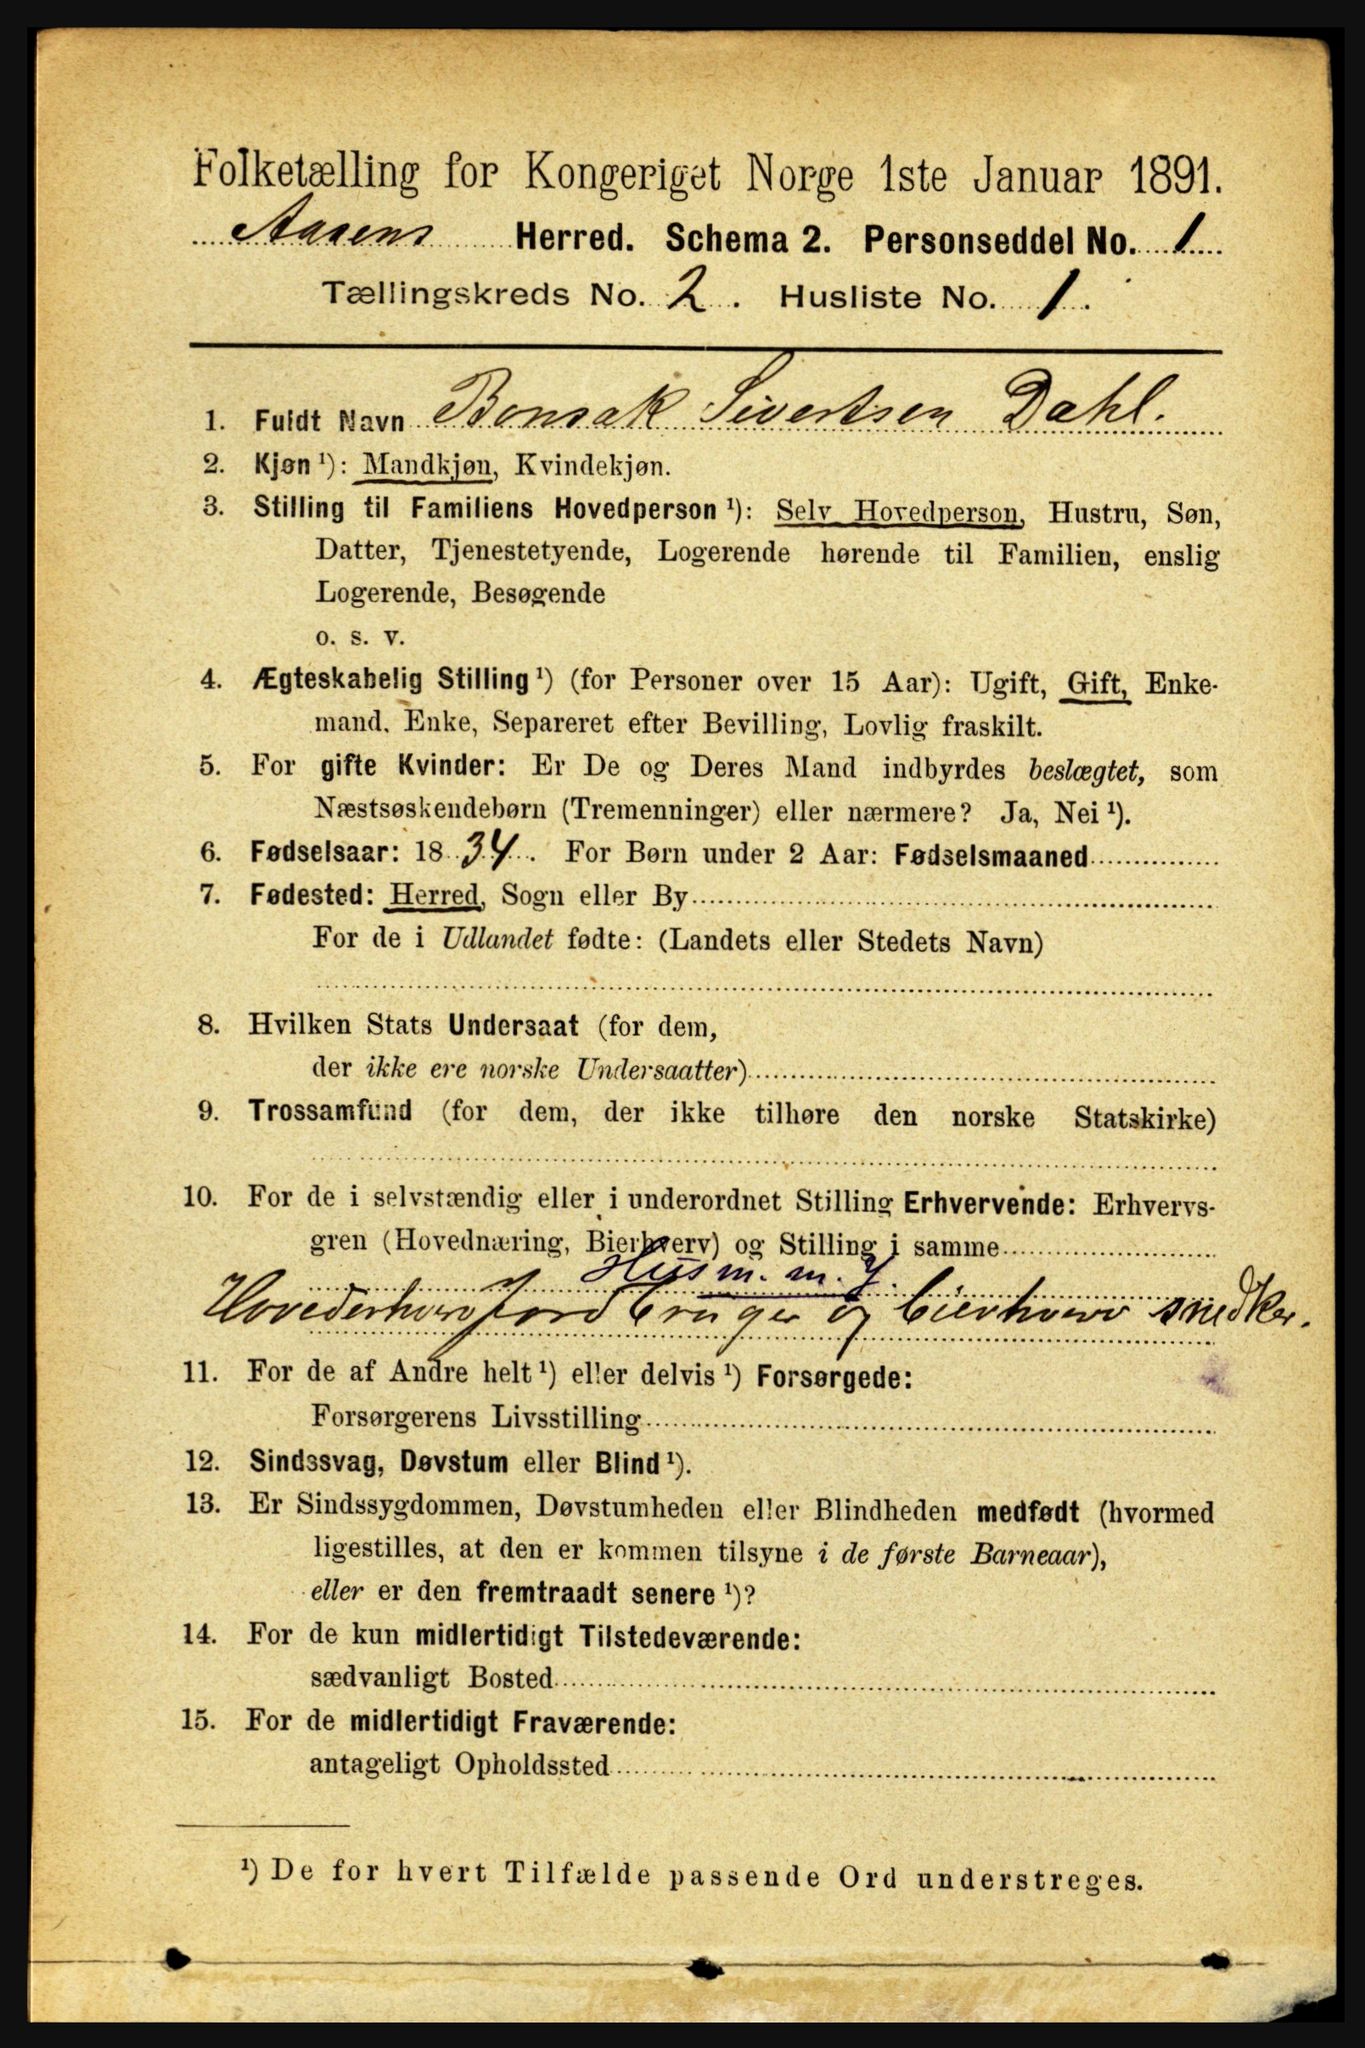 Folketælling for Kongeriget Norge 1ste Januar 1891.
Aasens Herred. Schema 2. Personseddel No. 1
Tællingskreds No. 2. Husliste No. 1.
1. Fuldt Navn Bonsak Sivertsen Dahl.
2. Kjøn ¹): Mandkjøn, Kvindekjøn.
3. Stilling til Familiens Hovedperson ¹): Selv Hovedperson, Hustru, Søn,
Datter, Tjenestetyende, Logerende hørende til Familien, enslig
Logerende, Besøgende
o. s. v.
4. Ægteskabelig Stilling ¹) (for Personer over 15 Aar): Ugift, Gift, Enke-
mand, Enke, Separeret efter Bevilling, Lovlig fraskilt.
5. For gifte Kvinder: Er De og Deres Mand indbyrdes beslægtet, som
Næstsøskendebørn (Tremenninger) eller nærmere? Ja, Nei ¹).
6. Fødselsaar: 1834. For Børn under 2 Aar: Fødselsmaaned
7. Fødested: Herred, Sogn eller By
For de i Udlandet fødte: (Landets eller Stedets Navn)
8. Hvilken Stats Undersaat (for dem,
der ikke ere norske Undersaatter)
9. Trossamfund (for dem, der ikke tilhøre den norske Statskirke)
10. For de i selvstændig eller i underordnet Stilling Erhvervende: Erhvervs-
gren (Hovednæring, Bierhverv) og Stilling i samme
Husm. m. J.
Hovederhverv jordbruger og bierhverv snedker.
11. For de af Andre helt ¹) eller delvis ¹) Forsørgede:
Forsørgerens Livsstilling
12. Sindssvag, Døvstum eller Blind ¹).
13. Er Sindssygdommen, Døvstumheden eller Blindheden medfødt (hvormed
ligestilles, at den er kommen tilsyne i de første Barneaar),
eller er den fremtraadt senere ¹)?
14. For de kun midlertidigt Tilstedeværende:
sædvanligt Bosted
15. For de midlertidigt Fraværende:
antageligt Opholdssted
¹) De for hvert Tilfælde passende Ord understreges.